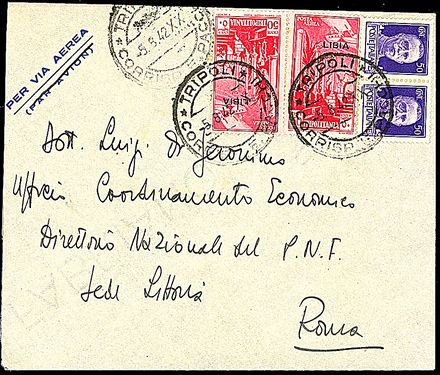 PER VIA AEREA
(PAR AVION)
TRIPOLI
CORRISP
5.3.42.XX
LIBIA
50
TRIPOLI
CORRISP
LIBIA
50
TRIPOLI
CORRISP
50
50
Dott. Luigi Di Geronimo
Ufficio Coordinamento Economico
Direttorio Nazionale del P.N.F.
Sede Littoria
Roma